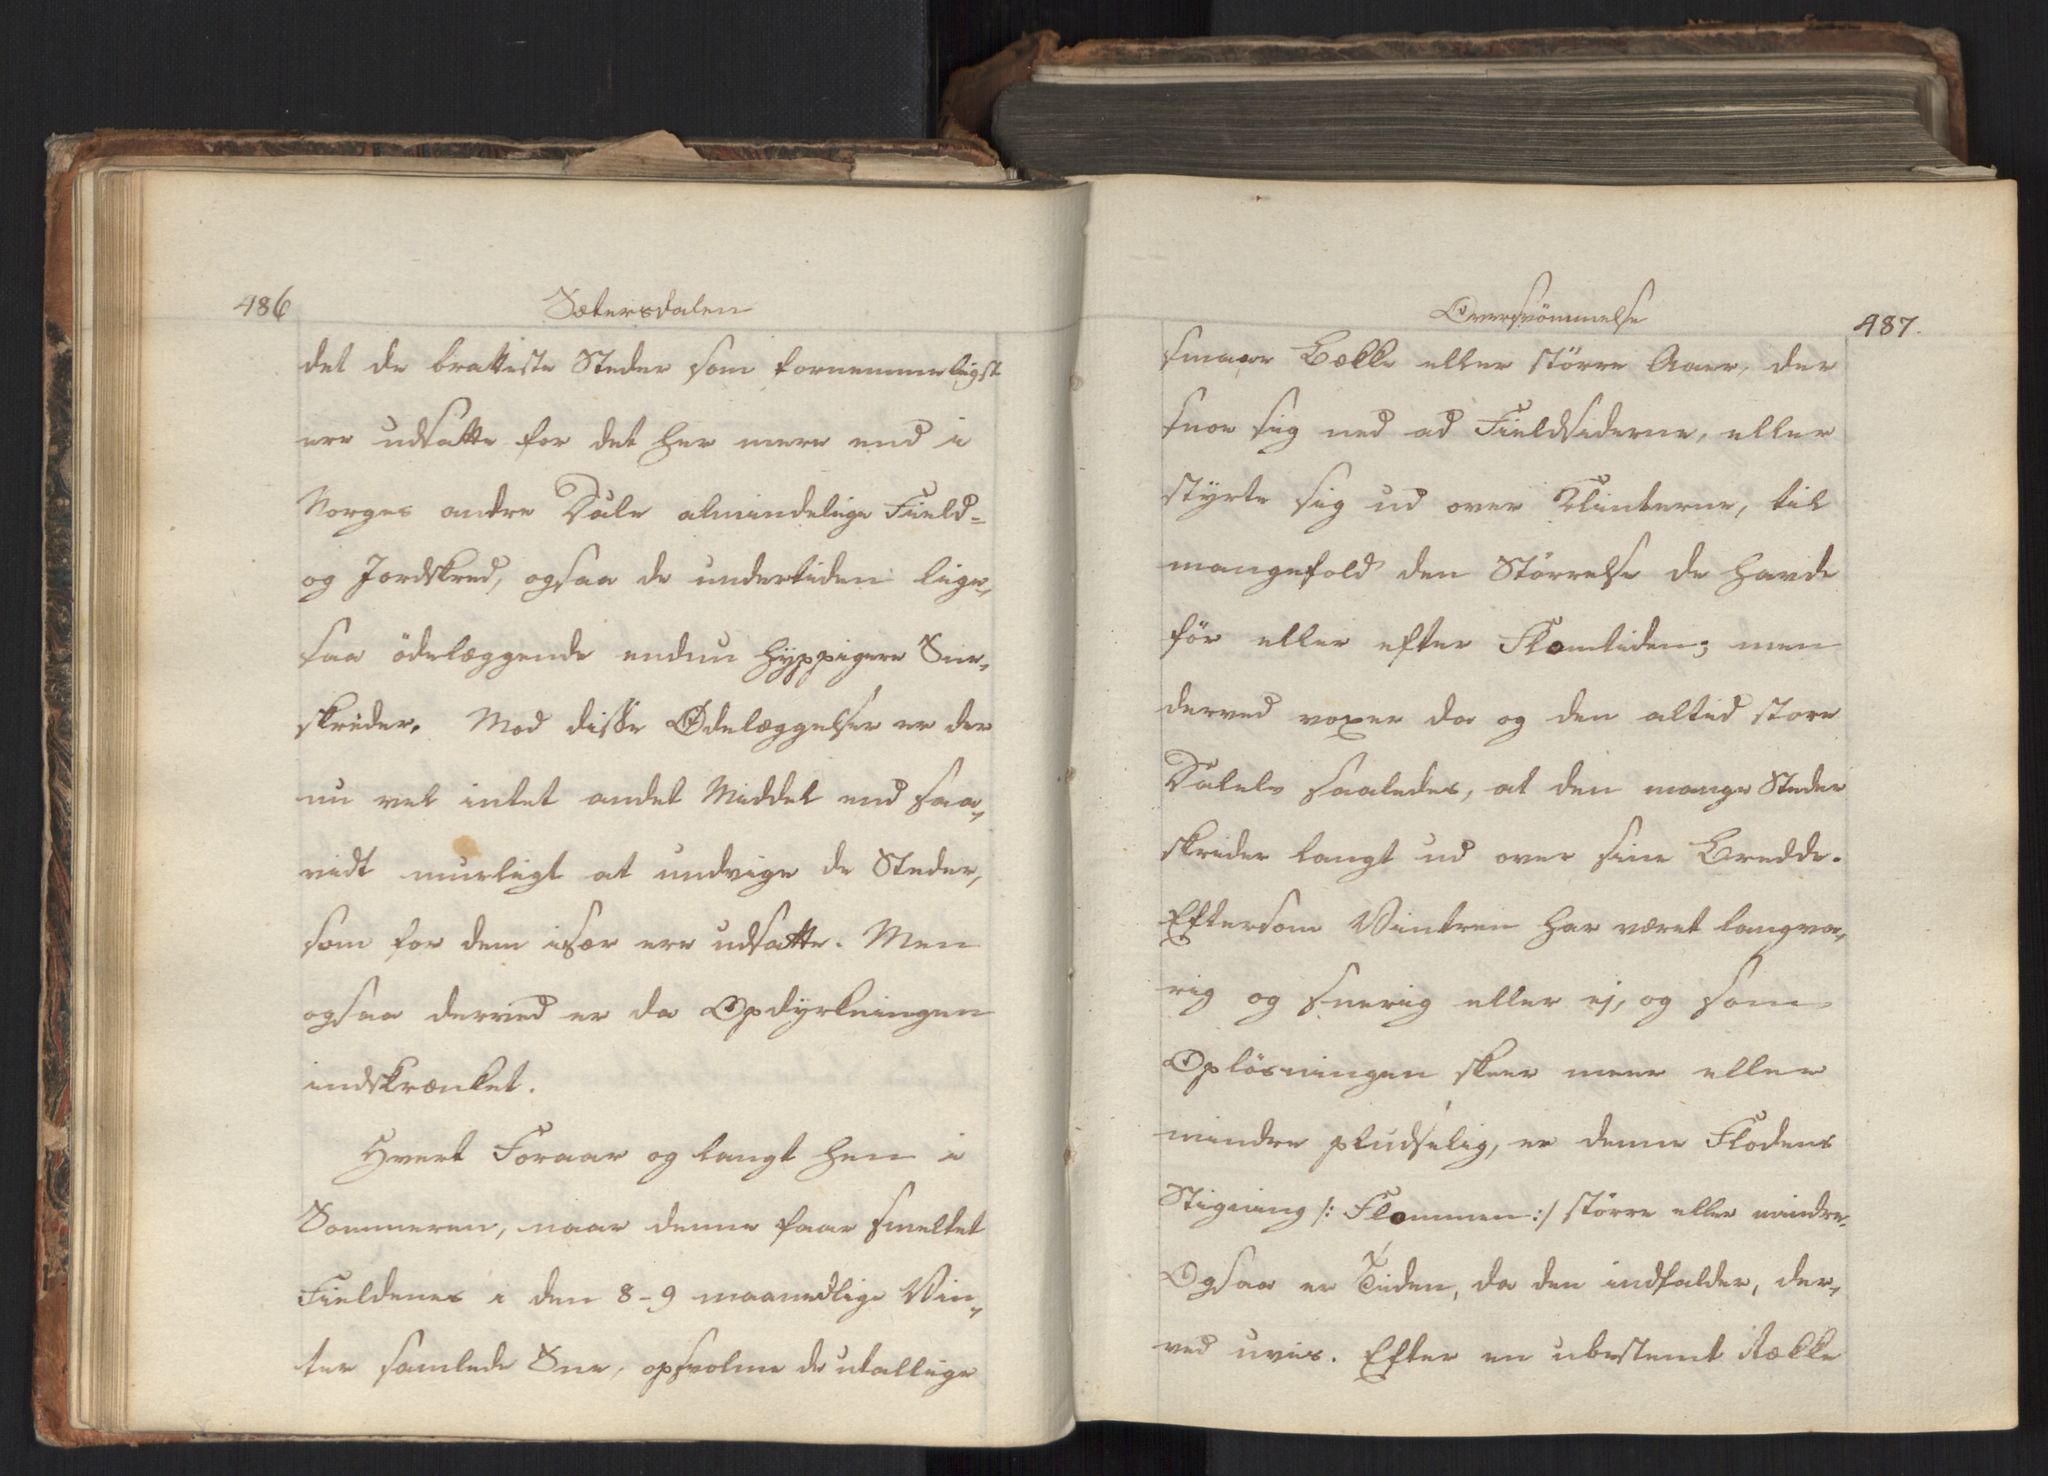 486
Sætersdalen
det de bratteste Steder som fornemmeligst
ere udsatte for det her mere end i
Norges andre Dale almindelige Field-
og Jordskred, ogsaa de undertiden lige,,
saa ödelæggende endnu hyppigere Snee,,
skrider. Mod disse Ødelæggelser er der
nu vel intet andet Middel end saa,,
vidt mueligt at undvige de Steder,
som for dem især ere udsatte. Men
ogsaa derved er da Opdyrkningen
indskrænket.
Hvert Foraar og langt hen i
Sommeren, naar denne faar smeltet
Fieldenes i den 8-9 maanedlige Vin,,
ter samlede Snee, opsvolme de utallige
Oversvömmelse
487.
smaae Bække eller större Aaer, der
snoe sig ned ad Fieldsiderne, eller
styrte sig ud over Klinterne, til
mangefold den Störrelse de havde
för eller efter Flomtiden; men
derved voxer da og den altid store
Dalelv saaledes, at den mange Steder
skrider langt ud over sine Bredde.
Eftersom Vintren har været langva,,
rig og sneerig eller ej, og som
Oplösningen skeer meer eller
mindre pludselig, er denne Flodens
Stigning /: Flommen:/ större eller mindre.
Ogsaa er Tiden, da den indfalder, der,,
ved uvis. Efter en ubestemt Række